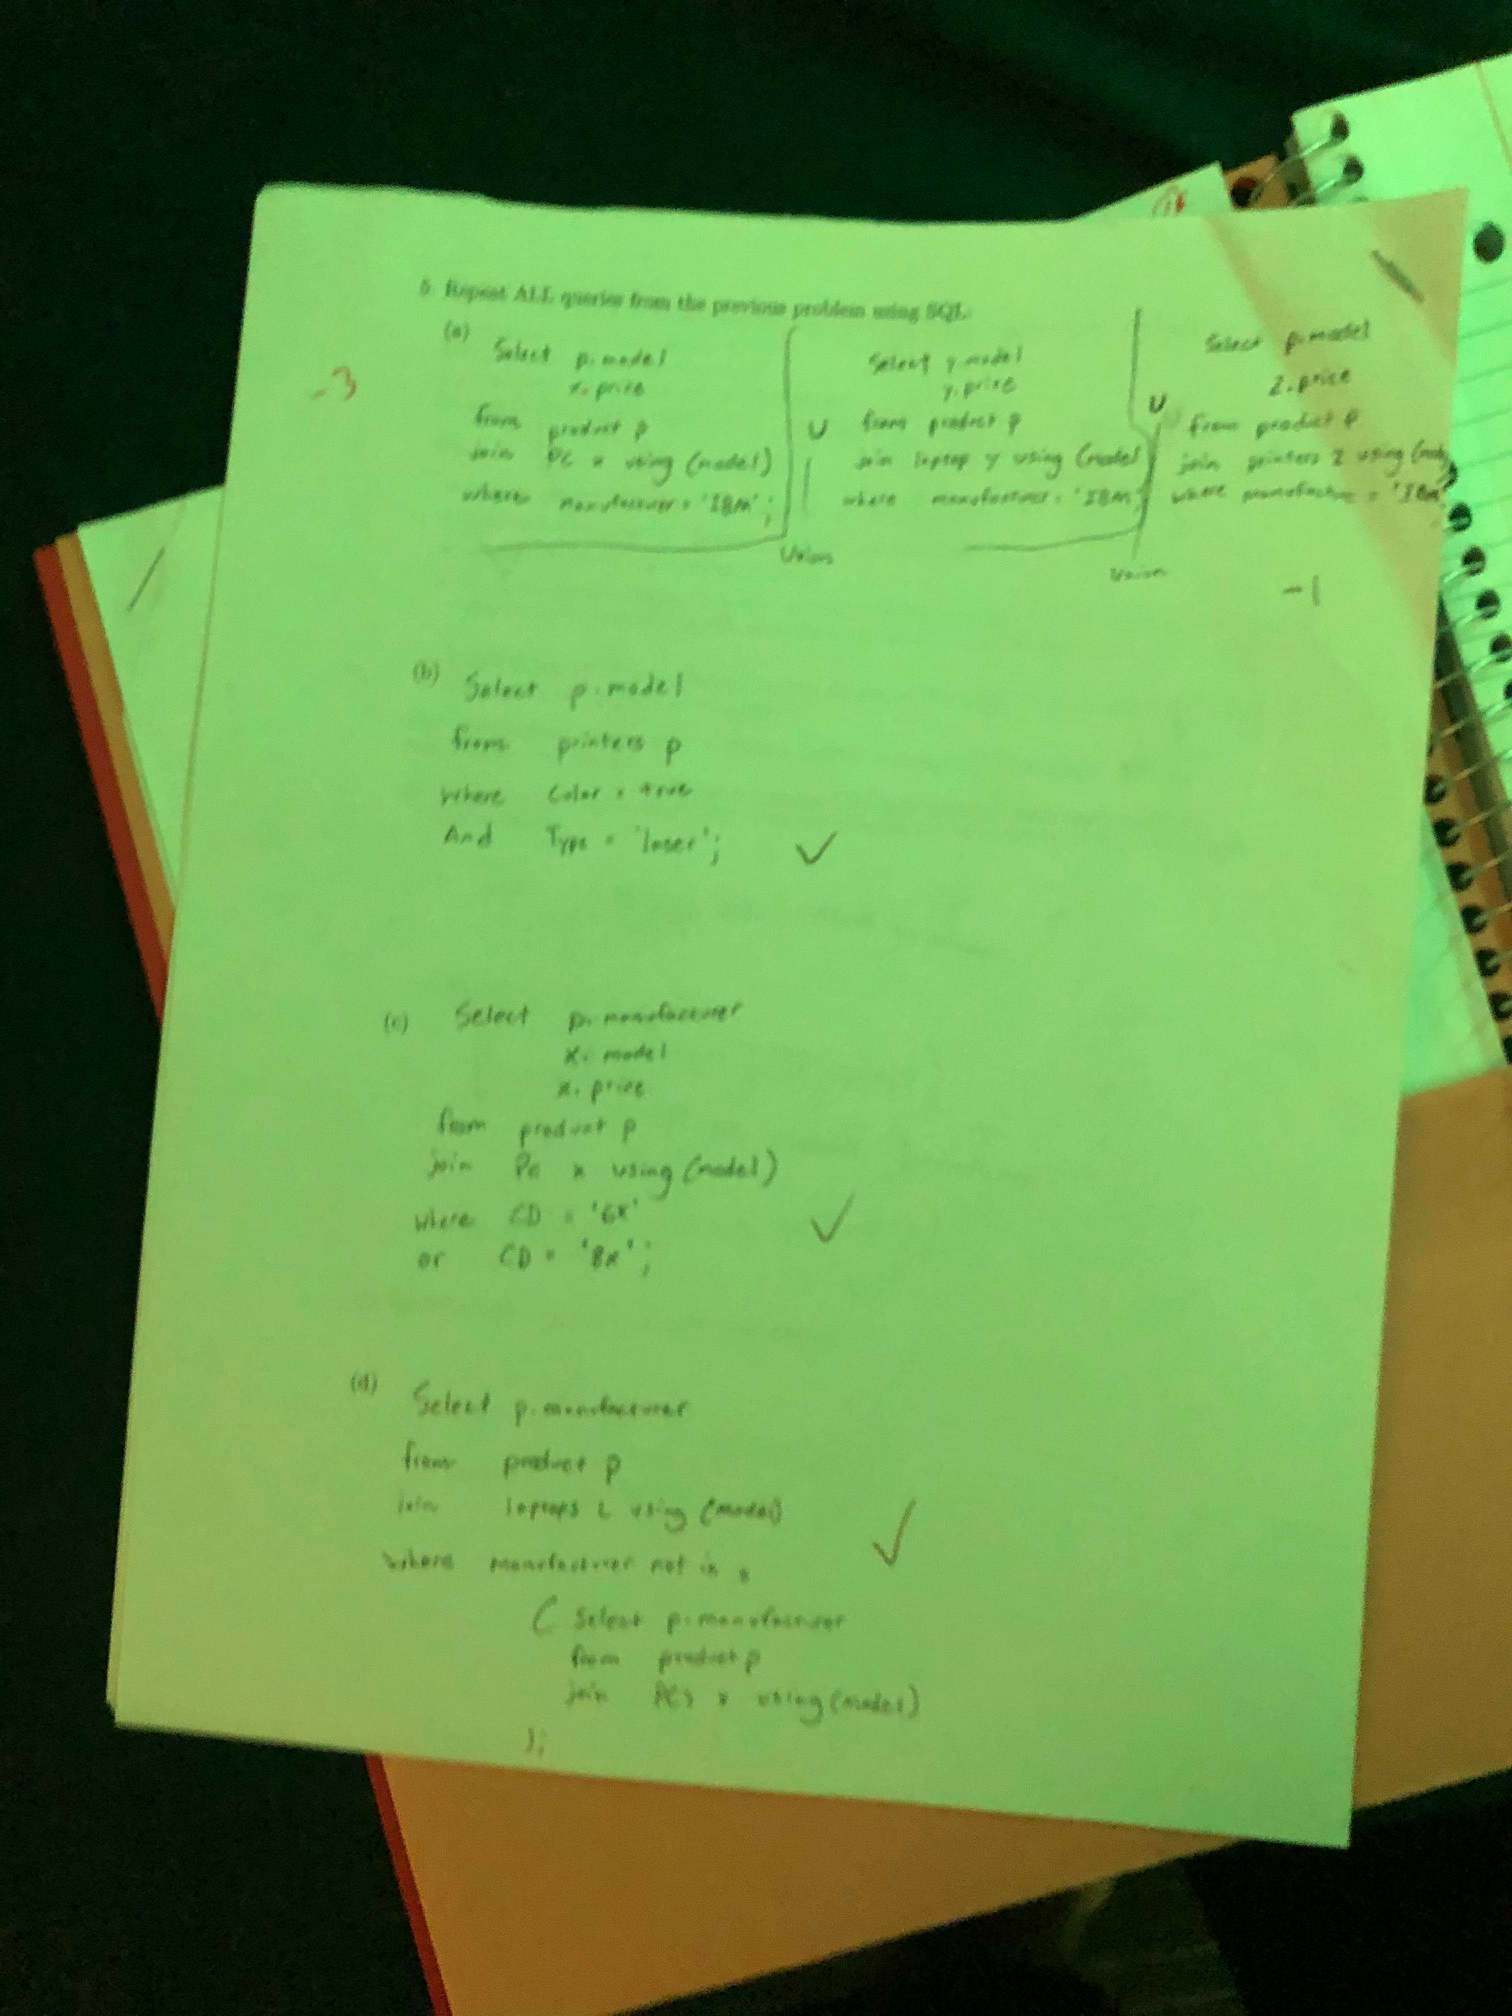 5. Repeat ALL queries from the previous problem using SQL:
-3
(a)
Select p.model
x.price
from product p
join PC x using (model)
where manufacturer = 'IBM';
U
Union
Select y.model
y.price
from product p
join laptop y using (model
where manufacturer = 'IBM'
U
Union
Select p.model
Z.price
from product p
join printers Z using
where = 'IBM'
-1
(b)
Select p.model
from printers p
Where Color = true
And Type = 'laser';
(c)
Select p.manufacturer
x.model
x.price
from product p
join PC x using (model)
where CD = '6x'
or CD = '8x';
(d)
Select p.manufacturer
from product p
join laptops L using (model)
Where manufacturer not in
( Select p.manufacturer
from product p
join PCs x using (model)
);